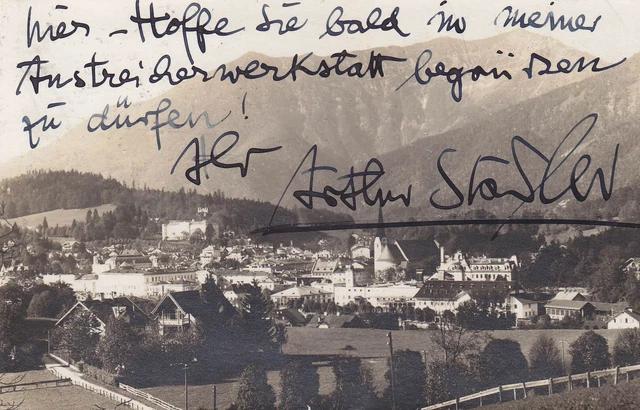 hier – Hoffe Sie bald in meiner
Anstreicherwerkstatt begrüssen
zu dürfen!
Ihr Arthur Stadler